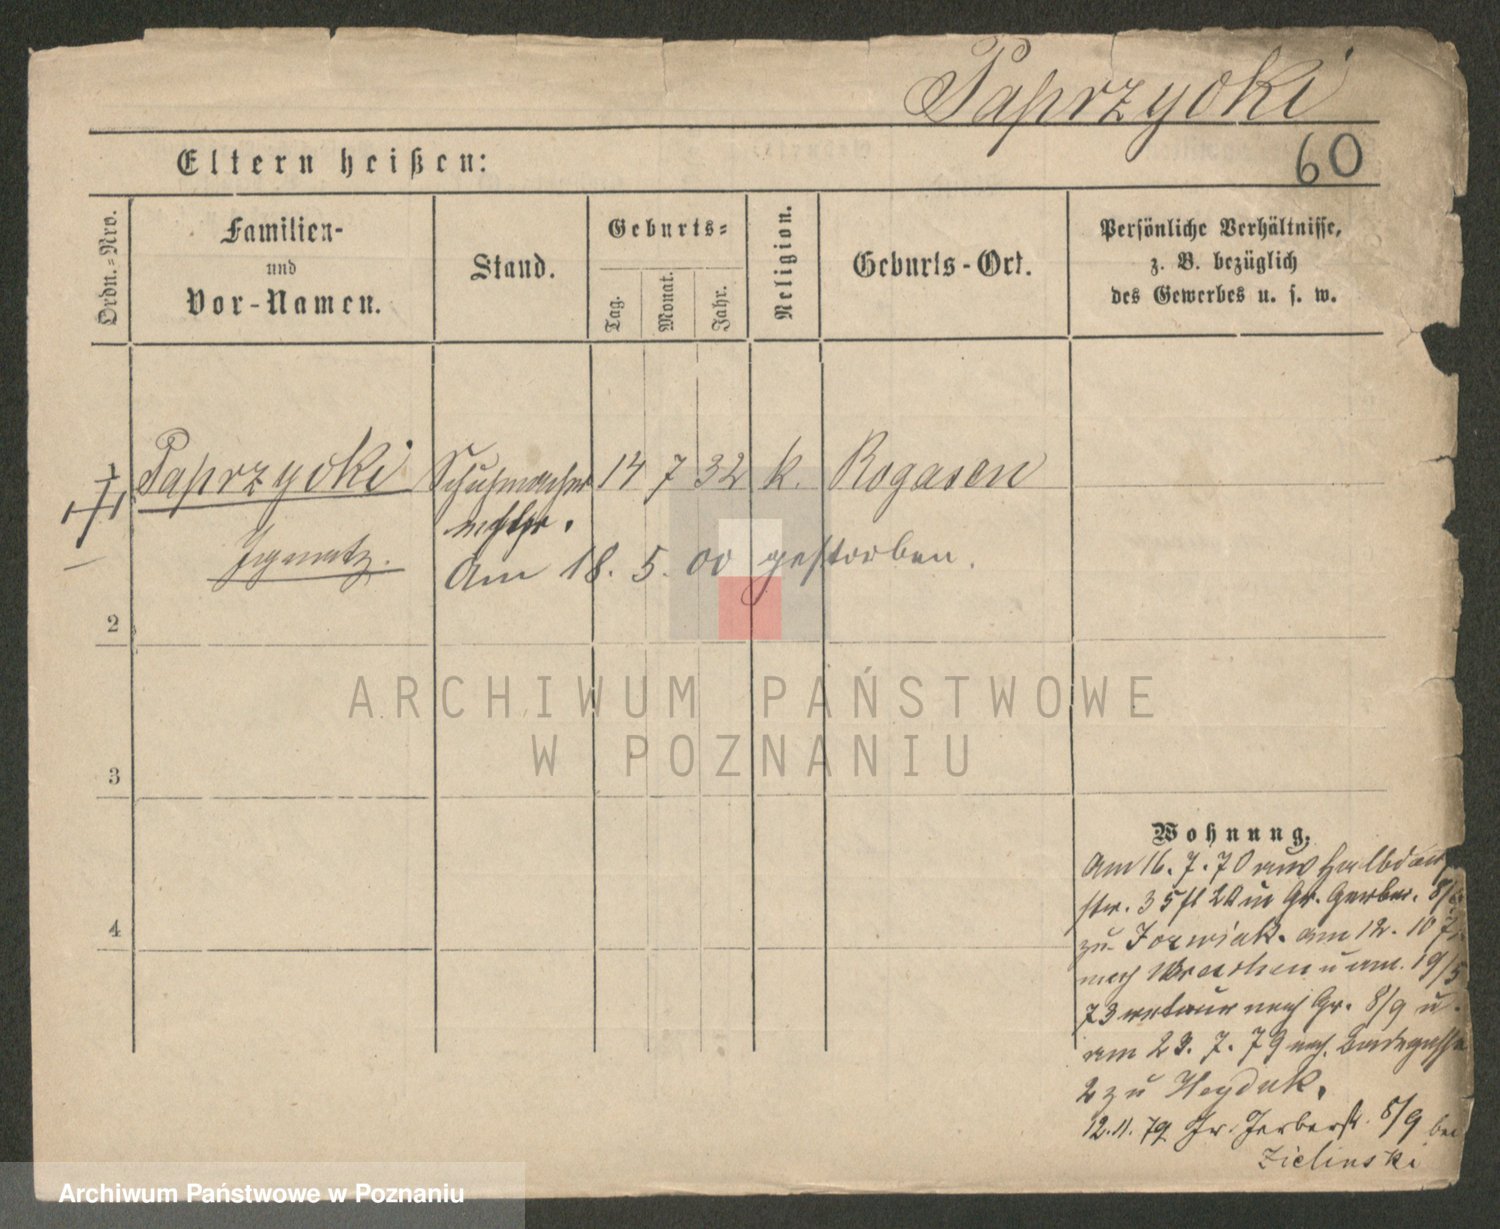 Paprzycki
60
Eltern heißen:
Ordn.-Nro.
Familien-
und
Vor-Namen.
Stand.
Geburts-
Tag.
Monat.
Jahr.
Religion.
Geburts-Ort.
Persönliche Verhältnisse,
z. B. bezüglich
des Gewerbes u. s. w.
1
Paprzycki Schuhmacher 14 7 32 k. Rogasen
Ignatz.
Am 18. 5. 00 gestorben.
2
3
4
Wohnung.
Am 16. 7. 70 aus Halbdorf
str. 35 in Gr. Gerber. 8/9
zu Jozwiak. am 12. 10
nach Wreschen u am. 19/5
73 retour nach Gr. 8/9 u.
am 23. 7. 79 nach. Badegasse
2 zu Heyduk.
12.11.79 Gr. Gerberstr. 8/9 bei
Zielinski
ARCHIWUM PAŃSTWOWE
W POZNANIU
Archiwum Państwowe w Poznaniu